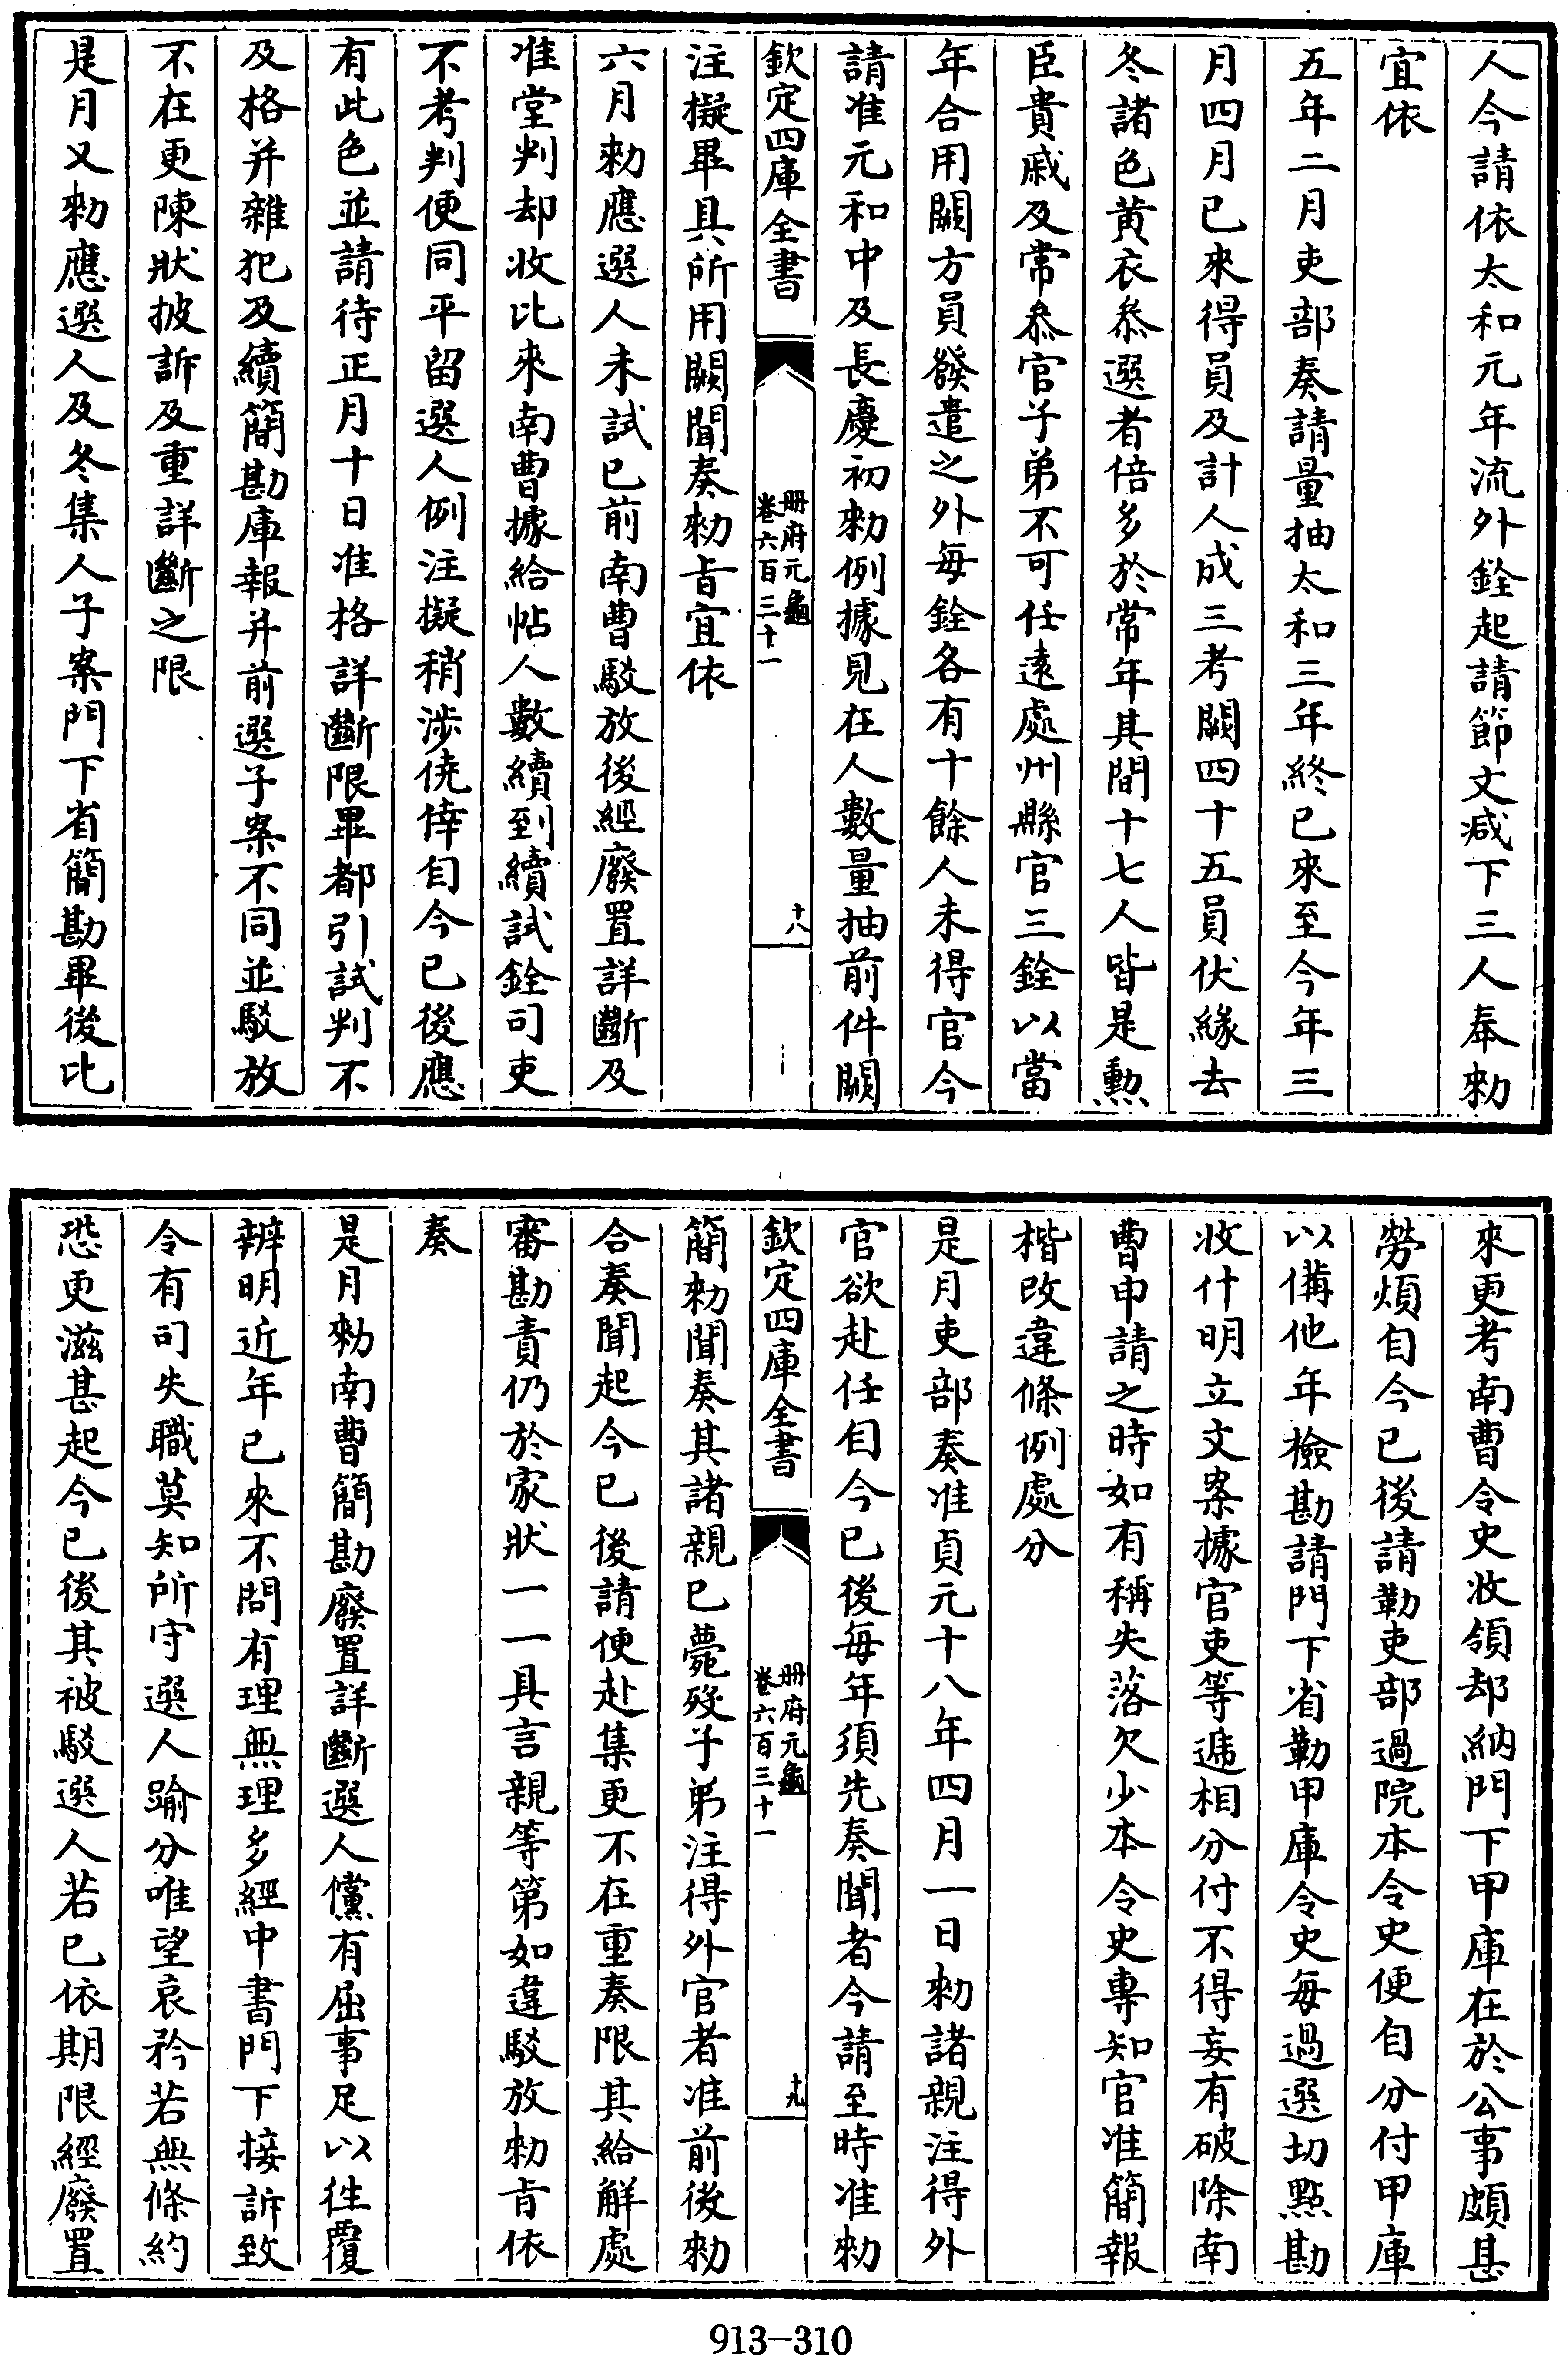 人今請依太和元年流外銓起請節文减下三人奉勑
宜依
五年二月吏部奏請量抽太和三年終已來至今年三
月四月已來得員及計人成三考闕四十五員伏緣去
冬諸色黄衣叅選者倍多於常年其間十七人皆是勲
臣貴戚及常叅官子弟不可任遠處州縣官三銓以當
年合用闕方員發遣之外每銓各有十餘人未得官今
請准元和中及長慶初勑例據見在人數量抽前件闕
欽定四庫全書
册府元龜
卷六百三十一
十八
注擬畢具所用闕聞奏勑旨宜依
六月勑應選人未試已前南曹駁放後經廢置詳斷及
准堂判却收比來南曹據給帖人數續到續試銓司吏
不考判便同平留選人例注擬稍涉僥倖自今已後應
有此色並請待正月十日准格詳斷限畢都引試判不
及格并雜犯及續簡勘庫報并前選子案不同並駁放
不在更陳狀披訴及重詳斷之限
是月又勑應選人及冬集人子案門下省簡勘畢後比
來更考南曹令史收領却納門下甲庫在於公事頗甚
勞煩自今已後請勒吏部過院本令史便自分付甲庫
以備他年檢勘請門下省勒甲庫令史每過選切點勘
收什明立文案據官吏等遞相分付不得妄有破除南
曹申請之時如有稱失落欠少本令史專知官准簡報
楷改違條例處分
是月吏部奏准貞元十八年四月一日勑諸親注得外
官欲赴任自今已後每年須先奏聞者今請至時准勑
欽定四庫全書
册府元龜
卷六百三十一
十九
簡勑聞奏其諸親已薨歿子弟注得外官者准前後勑
合奏聞起今已後請便赴集更不在重奏限其給解處
審勘責仍於家狀一一具言親等第如違駁放勑旨依
奏
是月勑南曹簡勘廢置詳斷選人儻有屈事足以徃覆
辨明近年已來不問有理無理多經中書門下接訴致
令有司失職莫知所守選人踰分唯望哀矜若無條約
恐更滋甚起今已後其被駁選人若已依期限經廢置
913-310